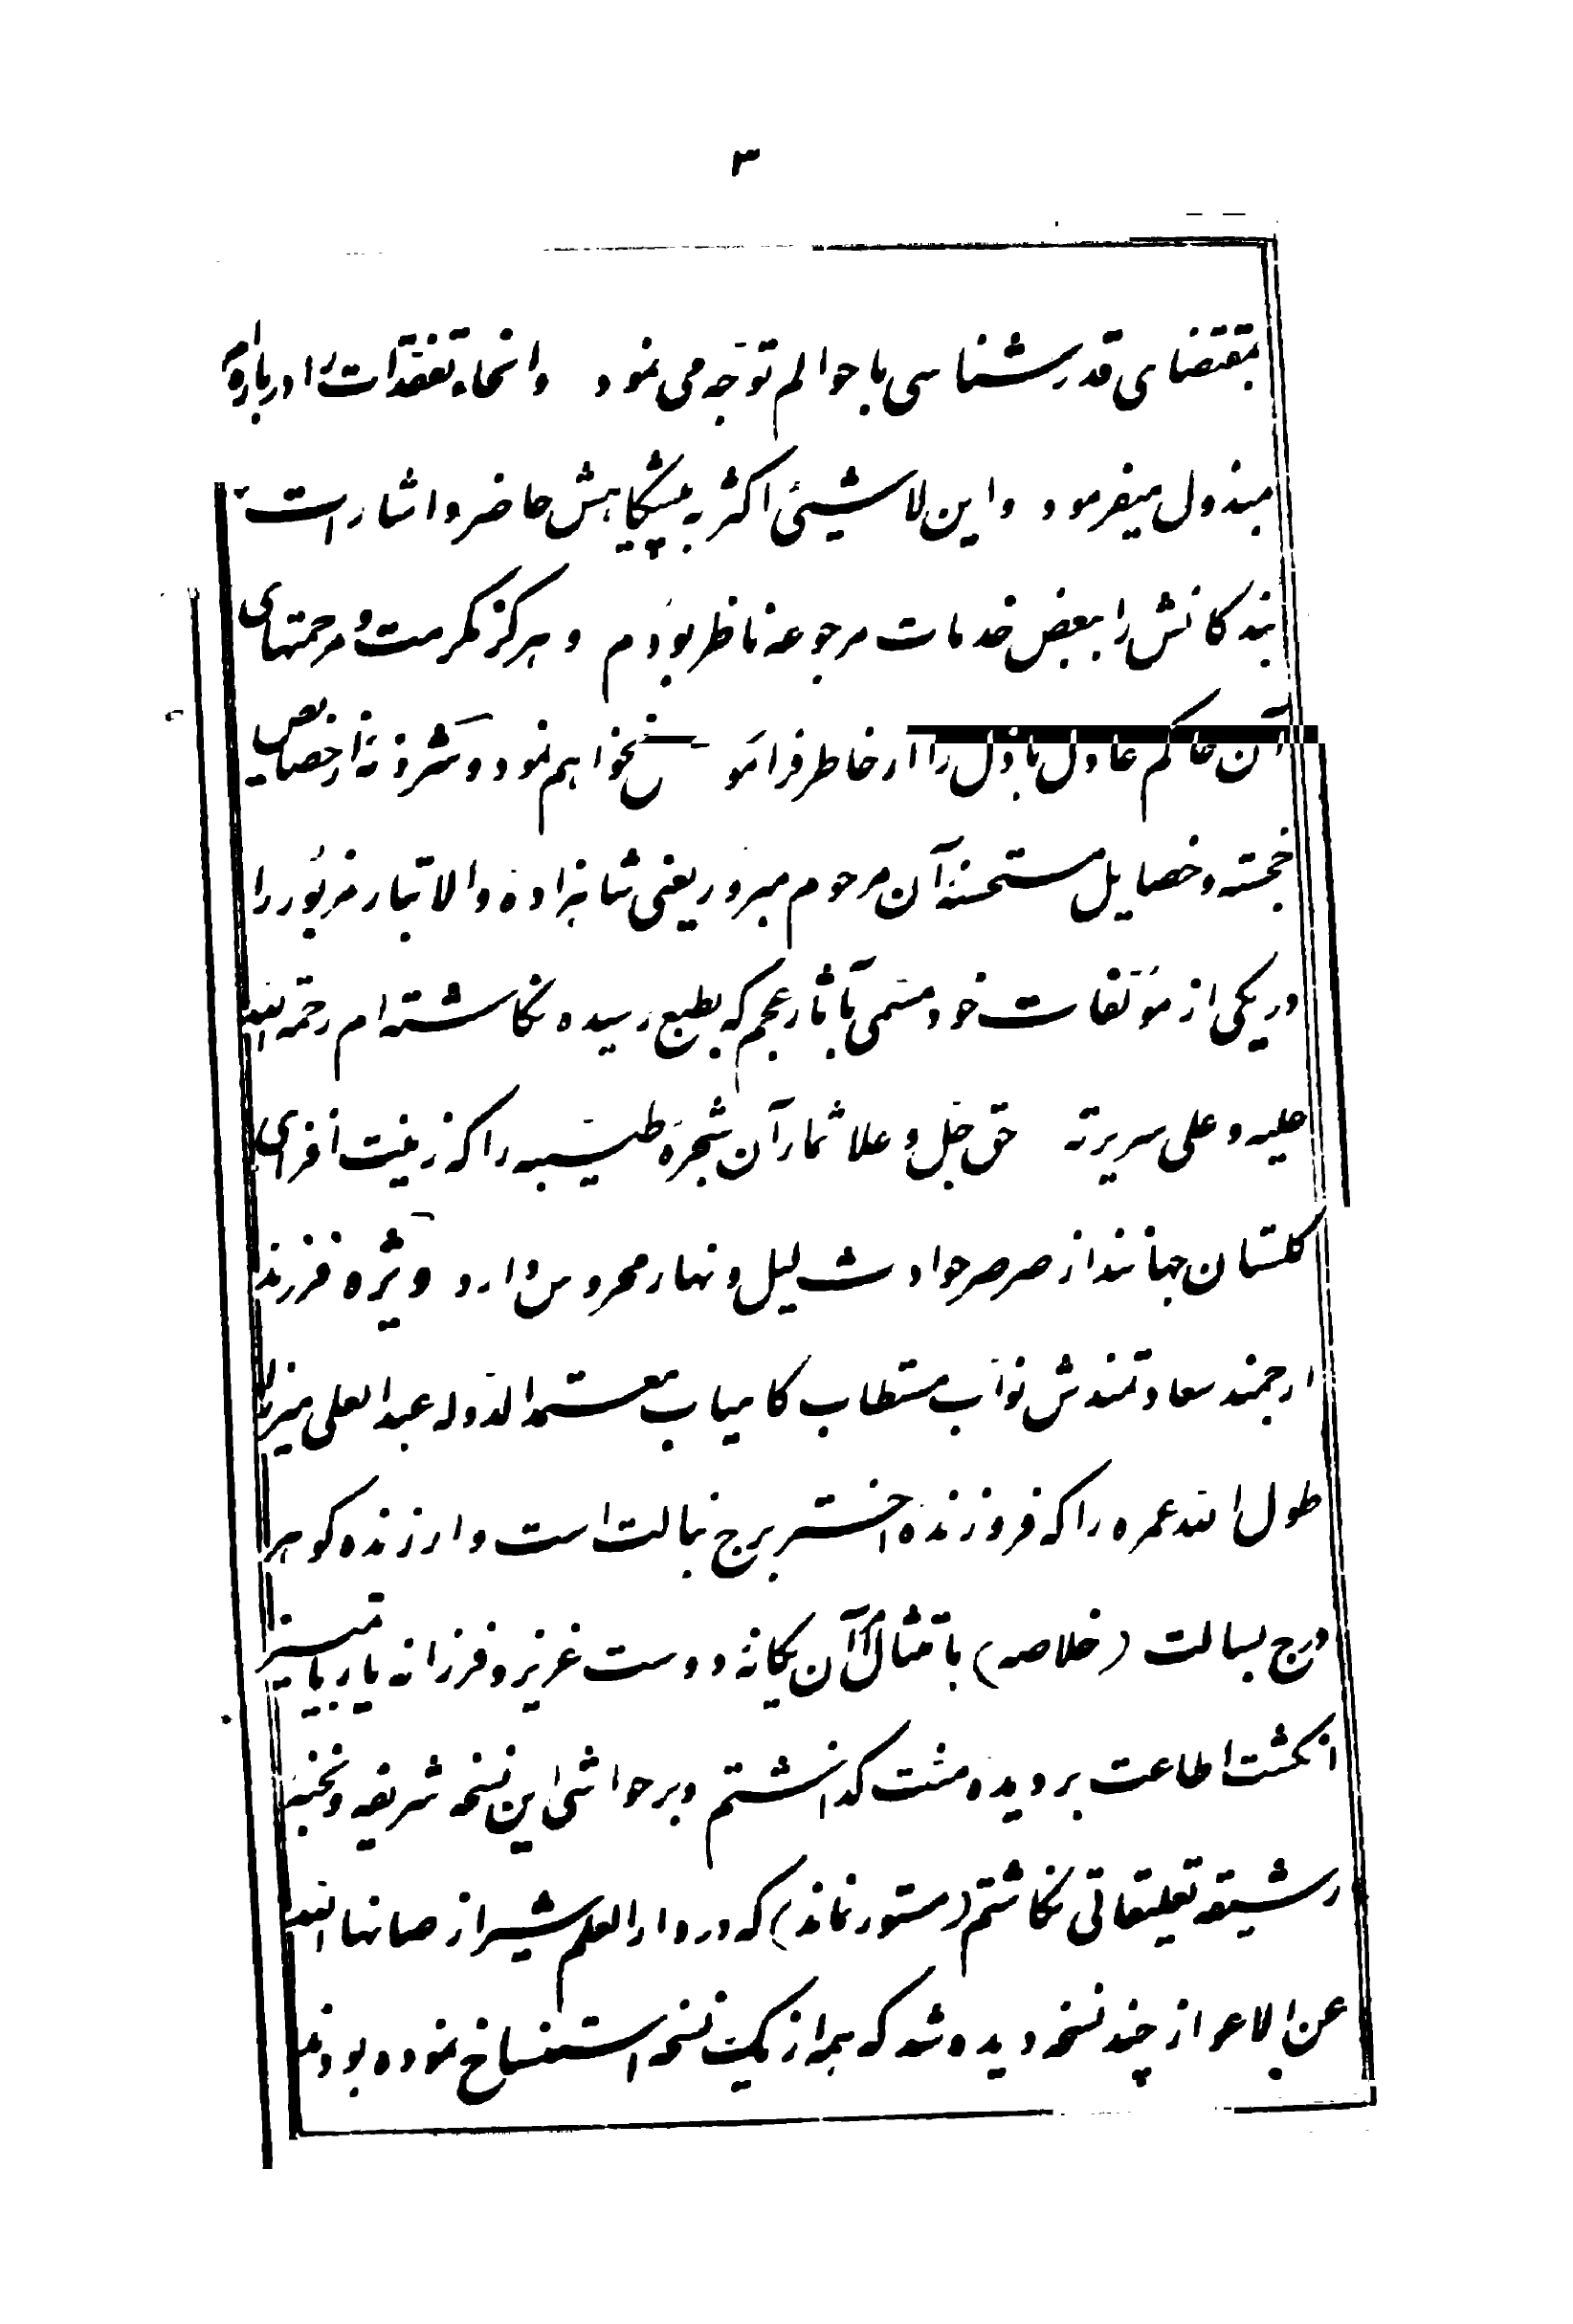 ۳
بمقتضای قدرشناسی باحوالم توجّه می نمود وانحاء تفقّدات را دربارهٔ ام
مبذول میفرمود واین لاشیئی اکثر به پیشگاهش حاضر واشارات
بندکانش را ببعض خدمات مرجوعه ناظر بودم وهرکز مکرمت ومرحمتهای
آن حاکم عادل باذل را از خاطر فراموش نخواهم نمود وشرذمهٔ از خصایص
خجسته وخصایل مستحسنهٔ آن مرحوم مبرور یعنی شاهزاده والاتبار مزبور را
در یکی از مؤلّفات خود مسمّی بآثار عجم که بطبع رسیده نکاشته ام رحمة الله
علیه وعلی سریرته حق جلّ وعلا ثمار آن شجرهٔ طیّبه را که زینت افزای
کلستان جهانند از صرصر حوادث لیل ونهار محروس دارد ویژه فرزند
ارجمند سعادتمندش نوّاب مستطاب کامیاب معتمد الدّوله عبدالعلی میرزا
طول الله عمره را که فروزنده اختر برج نبالت است وارزنده کوهر
درج بسالت (خلاصه) بامتثال امر آن یکانه دوست عزیز وفرزانه یار باتمیز
انکشت اطاعت بر دیده منت کذاشتم وبر حواشی این نسخه شریفه ونخبه
رشیقه تعلیقاتی نکاشتم (مستور نماند) که در دار العلم شیراز صانها الله
عن الاعواز چند نسخه دیده شد که همه از یک نسخه استنساخ نموده بودند